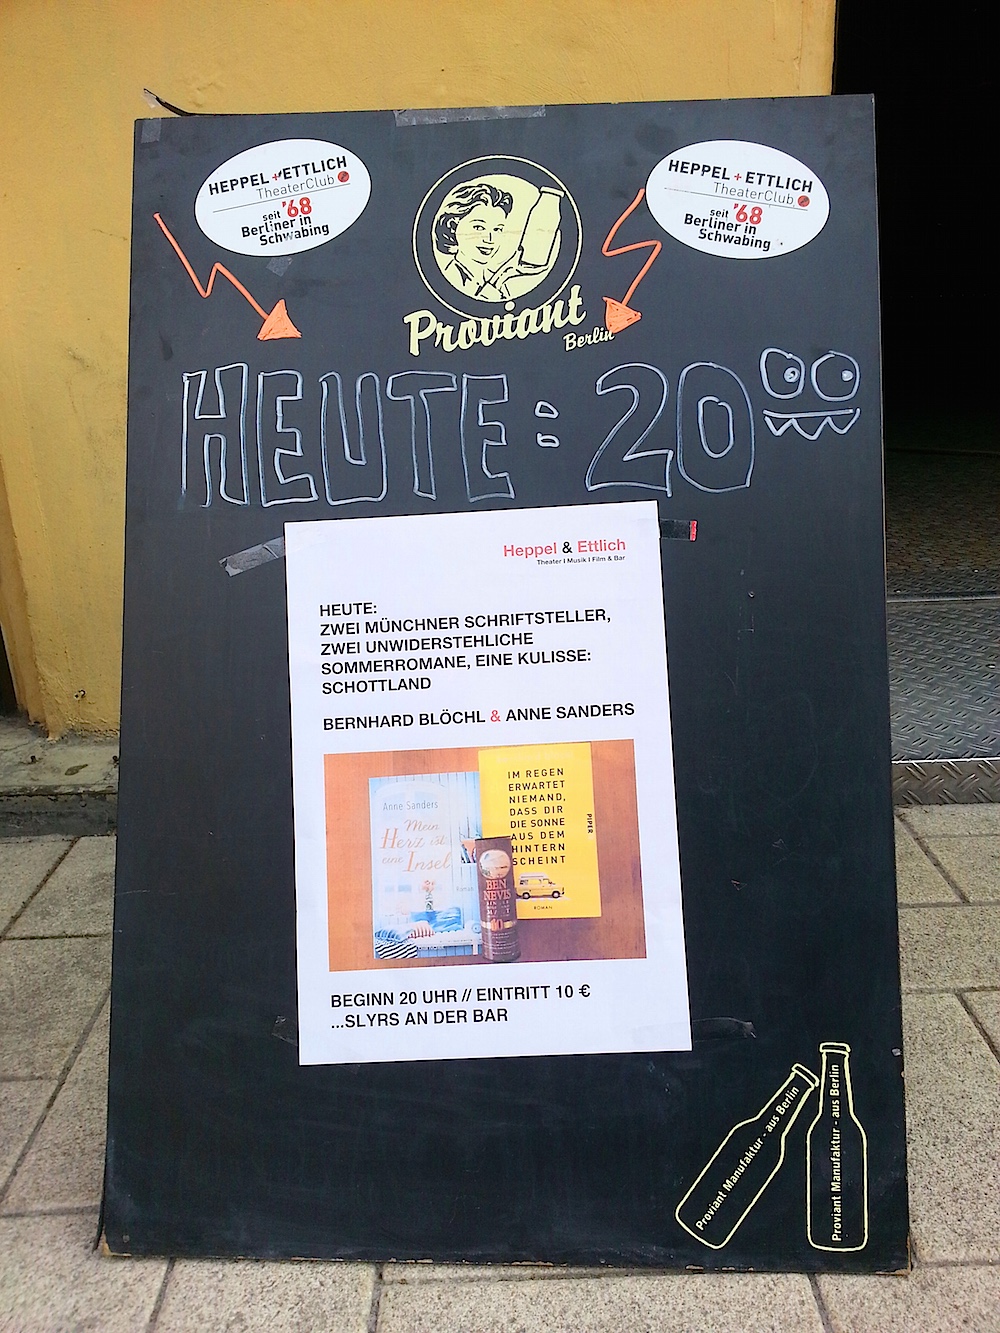 HEPPEL + ETTLICH
TheaterClub
seit '68
Berliner in
Schwabing
Proviant
Berlin
HEPPEL + ETTLICH
TheaterClub
seit '68
Berliner in
Schwabing
HEUTE: 20 00
Heppel & Ettlich
Theater I Musik I Film & Bar
HEUTE:
ZWEI MÜNCHNER SCHRIFTSTELLER,
ZWEI UNWIDERSTEHLICHE
SOMMERROMANE, EINE KULISSE:
SCHOTTLAND
BERNHARD BLÖCHL & ANNE SANDERS
Anne Sanders
Mein
Herz ist
eine Insel
Roman
IM REGEN
ERWARTET
NIEMAND,
DASS DIR
DIE SONNE
AUS DEM
HINTERN
SCHEINT
PIPER
ROMAN
BEN
NEVIS
10
BEGINN 20 UHR // EINTRITT 10 €
...SLYRS AN DER BAR
Proviant Manufaktur - aus Berlin
Proviant Manufaktur - aus Berlin